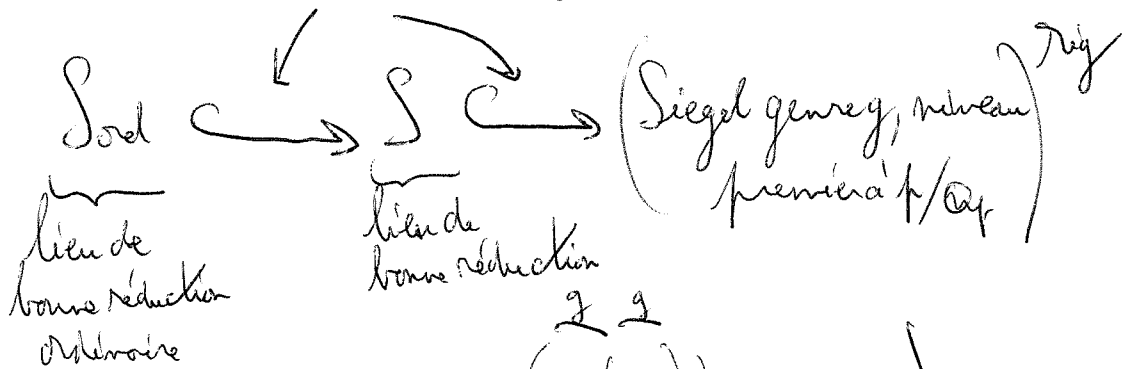 Sord ↪ S ↪ (Siegel genre g, niveau premier à p/Qp)^rig
lieu de bonne réduction ordinaire
lieu de bonne réduction
g g